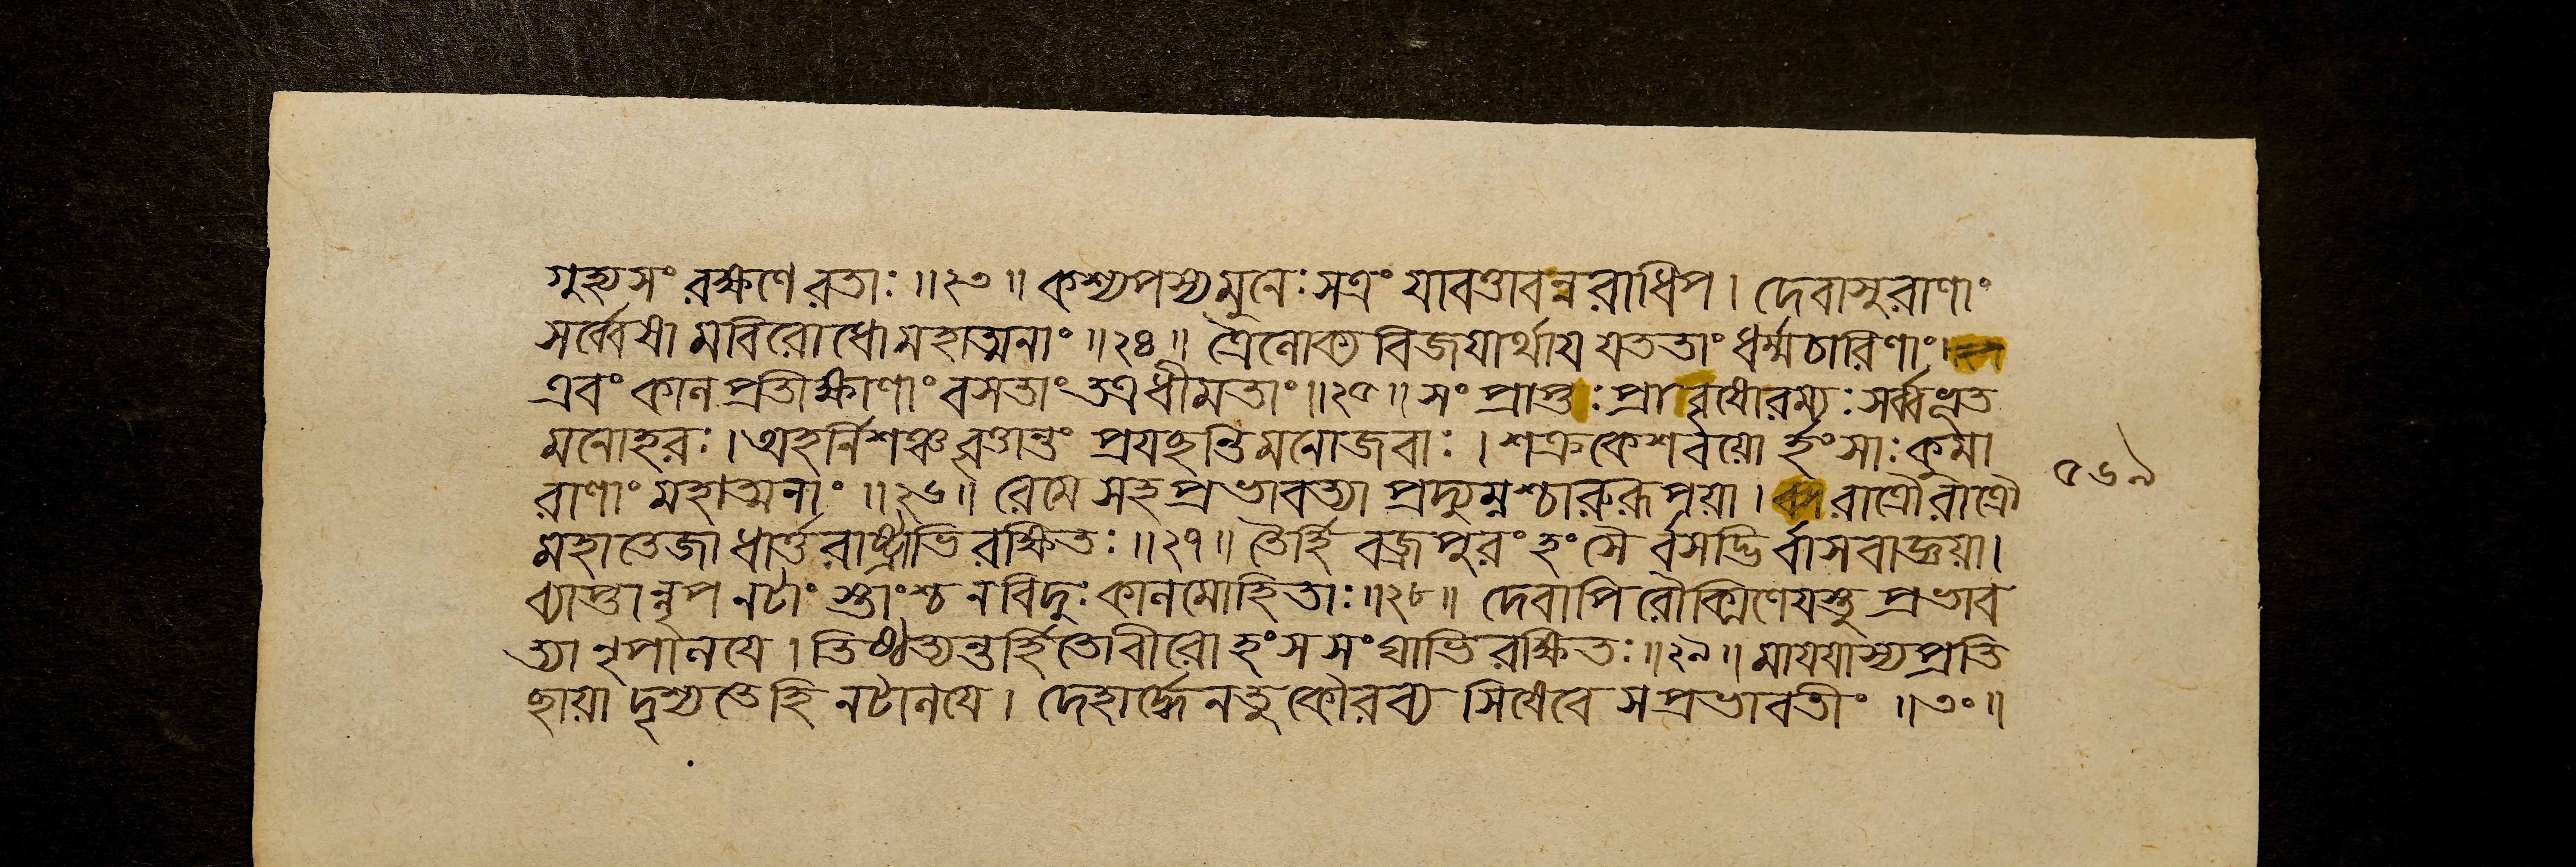 গুহ্যসংরক্ষণে রতাঃ ॥২৩॥ কশ্যপস্য মুনেঃ সত্রং যাবত্তাবন্নরাধিপ। দেবাসুরাণাং
সর্ব্বেষামবিরোধো মহাত্মনাং ॥২৪॥ ত্রৈলোক্য বিজয়ার্থায় যততাং ধর্ম্মচারিণাং।
এবং কাল প্রতীক্ষাণাং বসতাং তত্র ধীমতাং॥২৫॥ সংপ্রাপ্তঃ প্রাবৃষো রম্যঃ সর্ব্বভূত
মনোহরঃ। অহর্নিশঞ্চ বৃত্তান্তং প্রযচ্ছন্তি মনোজবাঃ। শক্রকেশবয়োর্হংসাঃ কুমা
রাণাং মহাত্মনাং ॥২৬॥ রেমে সহ প্রভাবত্যা প্রদ্যুম্নশ্চারুরূপয়া। রাত্রৌ রাত্রৌ
মহাতেজা ধার্ত্তরাষ্ট্রাভিরক্ষিতঃ ॥২৭॥ তৈর্হি বজ্রপুরং হংসৈর্বসদ্ভির্বাসবাজ্ঞয়া।
ব্যাপ্তান্নৃপ নটাংস্তাংশ্চ ন বিদুঃ কালমোহিতাঃ॥২৮॥ দেবাপি রৌক্মিণেযস্তু প্রভাব
ত্যা নৃপালযে। তিষ্ঠত্যন্তর্হিতো বীরো হংসসংঘাভিরক্ষিতঃ॥২৯॥ মাযযাস্য প্রতি
ছায়া দৃশ্যতে হি নটালযে। দেহার্দ্ধেন তু কৌরব্য সিষেবে স প্রভাবতীং ॥৩০॥
৫৬৯